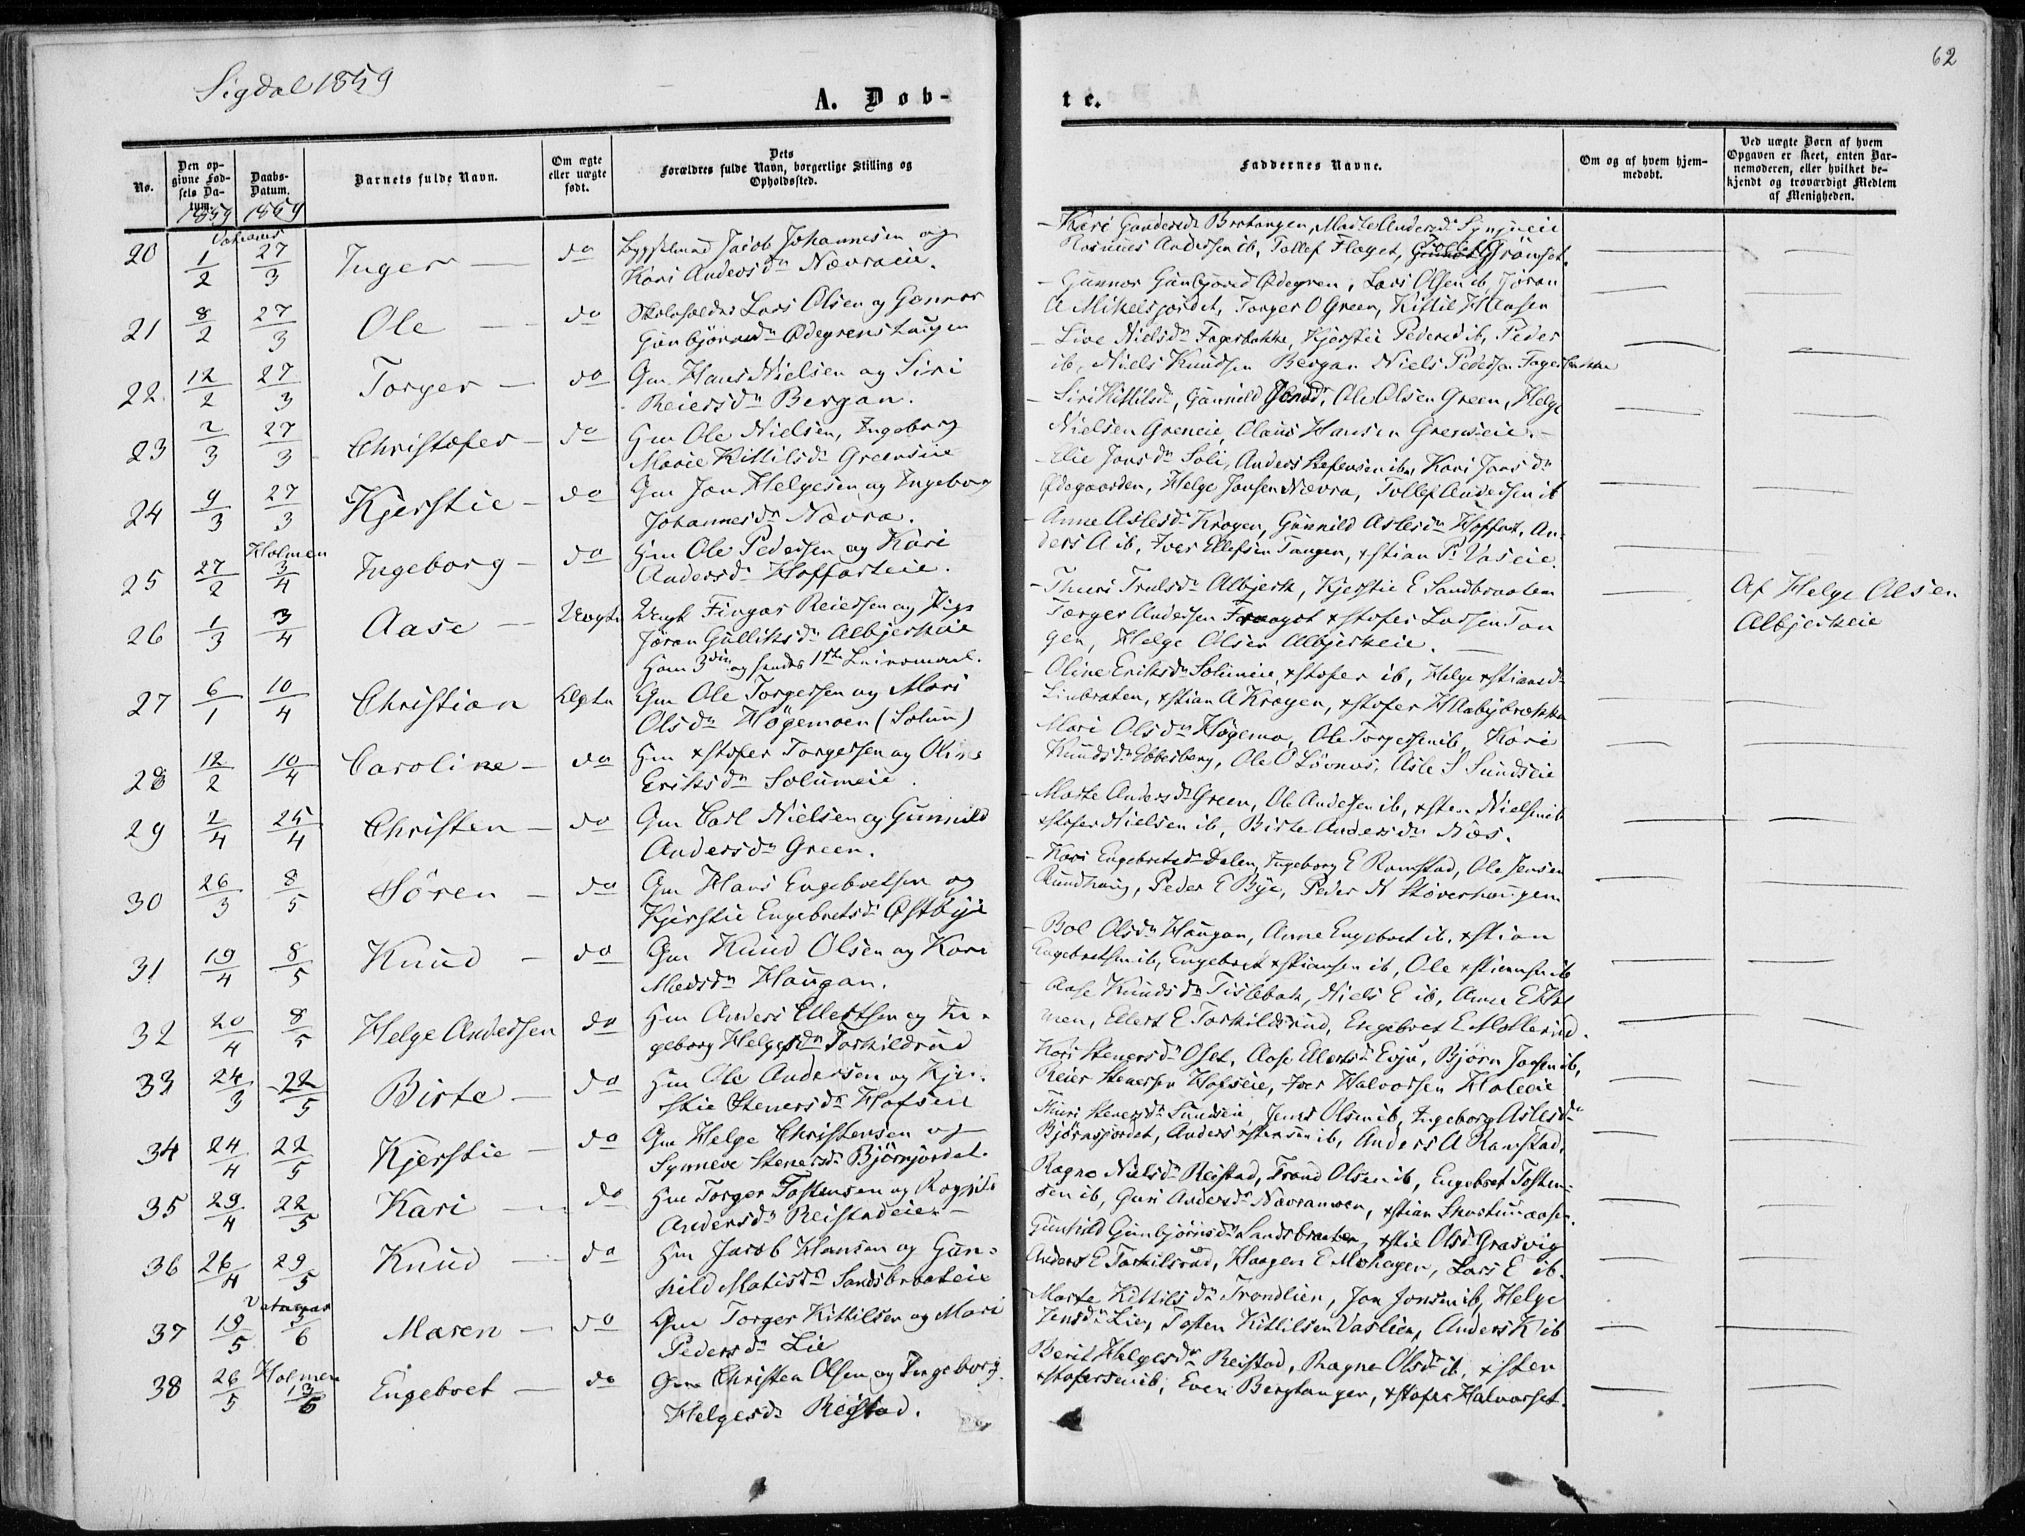 62
Sigdal 1859
A. Døb-
te.
No.
Den opgivne Fødsels Datum.
1859
Daabs-Datum.
1859
Barnets fulde Navn.
Om ægte eller uægte født.
Dets Forældres fulde Navn, borgerlige Stilling og Opholdssted.
Faddernes Navne.
Om og af hvem hjemmedøbt.
Ved uægte Børn af hvem Opgaven er skeet, enten Barnemoderen, eller hvilket bekjendt og troværdigt Medlem af Menigheden.
20 1/2 27/3 Inger do Jacob Johannesen og
Kari Andersdr Nævraeie.
Kari Gundersdr Brotangen, Marte Andersdr
Rasmus Andersen ib, Tollef Flaget, Tollef Grönset.
21 8/2 27/3 Ole do Skoleholder Lars Olsen og Gunnor
Gunbjörnsdr Ødegrenshaugen
Gunnor Gunbjörnsd Ødegren, Lars Olsen ib, Jøran
A Mikelsjordet, Torger O Green, Kittil Hansen
22 12/2 27/3 Torger do Gm Hans Nielsen og Siri
Reiersdr Bergan.
Live Nielsdr Fagerbakke, Kjerstie Pedersd ib, Peder
ib, Niels Knudsen Bergan Niels Pedersen Fagerbakke
23 2/3 27/3 Christofer do Gm Ole Nielsen, Ingeborg
Marie Kittilsdr Greeneie
Siri Kittilsdr, Gunnild, Ole Olsen Green, Helge
Nielsen Greneie, Claus Hansen Greneeie.
24 9/3 27/3 Kjerstie do Gm Jon Helgesen og Ingeborg
Johannesdr Nævra.
Jonsdr Soli, Anders ibm, Kari Jonsdr
Ødegaarden, Helge Jonsen Nævra, Tollef Andersen ib
25 27/2 Holmen 3/4 Ingeborg do Gm Ole Pedersen og Kari
Andersdr Hoffarteie.
Anne Aslesdr Krogen, Gunnild Aslesdr Hoffart, An-
ders A ib, Iver Ellefsen Tangen, xstian P. Vaseie.
26 1/3 3/4 Aase Uægte Ungk Fingar Reiersen og Pige
Jøran Gulliksdr Albjerkeie
Hans 3die og hendes 1ste Leiermaal.
Thuri Trulsdr Albjerk, Kjerstie E Sandbraaten
Torger Andersen xstofer Larsen Tan
gen, Helge Olsen Albjerkeie.
Af Helge Olsen
Albjerkeie
27 6/1 10/4 Christian Ægte Gm Ole Torgersen og Mari
Olsdr Högemoen (Solum)
Oline Eriksdr Solumeie, xstofer ib, Helge xstiansdr
xstian A Krogen, xstofer H
28 12/2 10/4 Caroline do Gm xstofer Torgersen og Oline
Eriksdr Solumeie.
Mari Olsdr Högemo, Ole Torgersen ib, Kari
Knudsdr Ebbesberg, Ole O Lövnæs, Asle S Sundseie
29 2/4 25/4 Christen do Gm Carl Nielsen og Gunnild
Andersdr Green.
Marte Andersdr Green, Ole Andersen ib, xsten Nielsen ib
xstofer Nielsen ib, Birte Andersdr Næs.
30 26/3 8/5 Sören do Gm Hans Engebretsen og
Kjerstie Engebretsdr Østbye
Kari Engebretsdr Dalen, Ingeborg E Ramstad, Ole Jensen
Rundhaug, Peder E Bye, Peder N Støverhaugen
31 19/4 8/5 Knud do Gm Knud Olsen og Kari
Madsdr Haugan.
Bol Olsdr Haugan, Anne Engebret ib, xstian
Engebretsen ib, Engebret xstiansen ib, Ole xstiansen ib
32 20/4 8/5 Helge Andersen do Gm Anders Ellertsen og In-
geborg Helgesdr Torkildrud
Aase Knudsdr Tislebak, Niels E ib, Anne E Hol
men, Ellert E Torkildsrud, Engebret E Mollerud.
33 24/3 22/5 Birte do Gm Ole Andersen og Kjer-
stie Stenersdr Hofseie
Kari Stenersdr Oset, Aase Ellertsdr Evju, Björn Jonsen ib,
Reier Stenersen Hofseie, Iver Halvorsen Holeeie
34 24/4 22/5 Kjerstie do Gm Helge Christensen og
Synneve Stenersdr Björnjordet.
Thuri Stenersdr Sundseie, Jens Olsen ib, Ingeborg Aslesdr
Björnsjordet, Anders xstensen ib, Anders A Ramstad.
35 29/4 22/5 Kari do Gm Torger Tostensen og Ragnile
Andersdr Reistadeie
Ragne Nielsdr Reistad, Trond Olsen ib, Engebret Tosten-
sen ib, Guri Andersdr Nævramoen, xstian Skartumaasen.
36 26/4 29/5 Knud do Gm Jacob Hansen og Gun-
hild Matisdr Sandsbraateie
Gunhild Gunbjörnsdr Sandsbraaten, xstie Olsd Grasvig
Anders E Torkilsrud, Haagen E Mohagen, Lars E ib.
37 19/5 Vatnaas 5/6 Maren do Gm Torger Kittilsen og Mari
Pedersdr Lie
Marte Kittilsdr Trondlien, Jon Jonsen ib, Helge
Jensdr Lie, Tosten Kittilsen Vaslien, Anders K ib
38 26/5 Holmen 13/6 Engebret do Gm Christen Olsen og Ingeborg
Helgesdr Reistad.
Berit Helgesdr Reistad, Ragne Olsdr ib, xsten
xstofersen ib, Even Bergtangen, xstofer Halvorset.